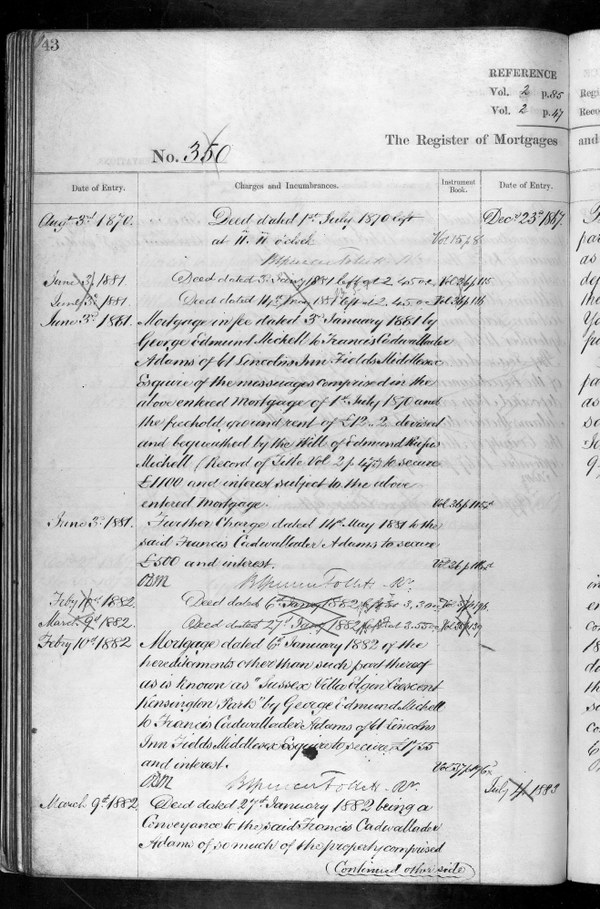 43
REFERENCE
Vol. 2 p. 85
Vol. 2 p. 47
The Register of Mortgages
No. 350
Date of Entry.
Charges and Incumbrances.
Instrument Book.
Date of Entry.
Augt 3rd 1870.
Deed dated 1st July 1870 left
at 11. 11 o'clock
Decr 23rd 1867.
June 3rd 1881
Deed dated 3rd Jany 1881 left at 2.45 o.c.
Vol. 36 p. 115
June 3rd 1881.
Deed dated 14th 1881 left at 2.45 o.c.
Vol. 36 p. 116
June 3rd 1881.
Mortgage in fee dated 3rd January 1881 by
George Edmund Mickell to Francis Cadwallader
Adams of 61 Lincolns Inn Fields Middlesex
Esquire of the messuages comprised in the
above entered Mortgage of 1st July 1870 and
the freehold ground rent of £12.. 2 devised
and bequeathed by the Will of Edmund
Mickell (Record of Title Vol. 2 p. 47) to secure
£1100 and interest subject to the above
entered Mortgage.
Vol. 36 p. 115
June 3rd 1881.
Further Charge dated 14th May 1881 to the
said Francis Cadwallader Adams to secure
£500 and interest.
Vol. 36 p. 116
Feby 10th 1882.
Deed dated 6th Jany 1882 left at 3.3 o.c.
March 9th 1882.
Deed dated 27th Jany 1882 left at 3.55 o.c.
Febry 10th 1882
Mortgage dated 6th January 1882 of the
hereditaments other than such part thereof
as is known as "Sussex Villa Elgin Crescent
Kensington Park" by George Edmund Mickell
to Francis Cadwallader Adams of 61 Lincolns
Inn Fields Middlesex Esquire to secure £1755
and interest.
July 11 1883
March 9th 1882
Deed dated 27th January 1882 being a
Conveyance to the said Francis Cadwallader
Adams of so much of the property comprised
(Continued other side)
and